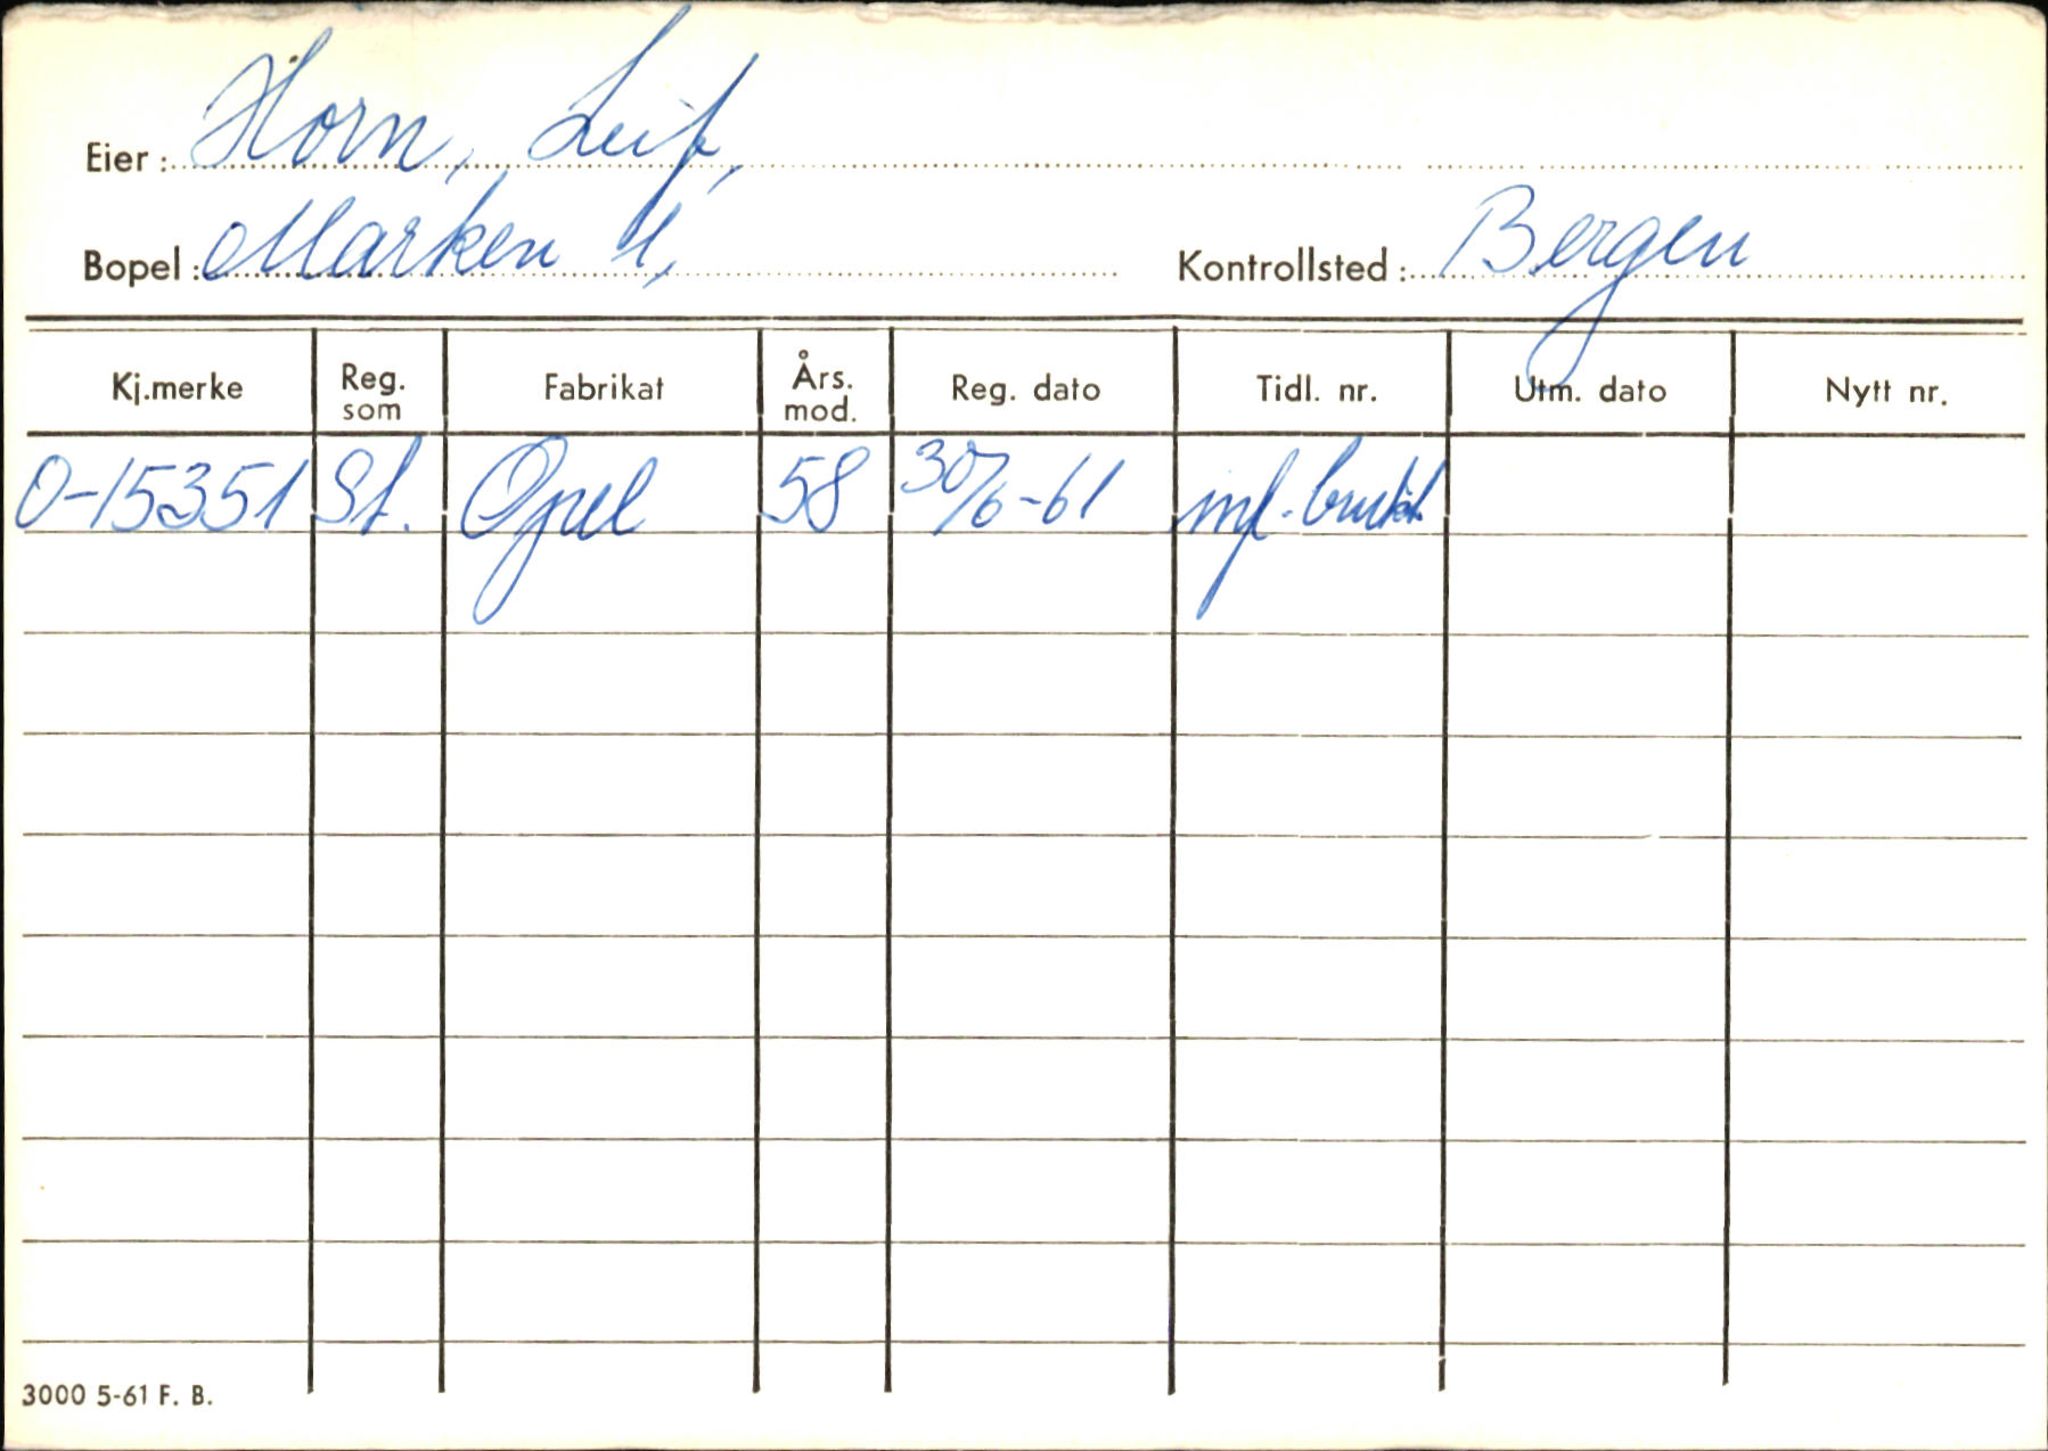 Eier: Horn, Leif,
Bopel: Marken 4, Kontrollsted: Bergen
Kj.merke Reg. som Fabrikat Års. mod. Reg. dato Tidl. nr. Utm. dato Nytt nr.
O-15351 St. Opel 58 30/6-61 inf. brukt
3000 5-61 F. B.